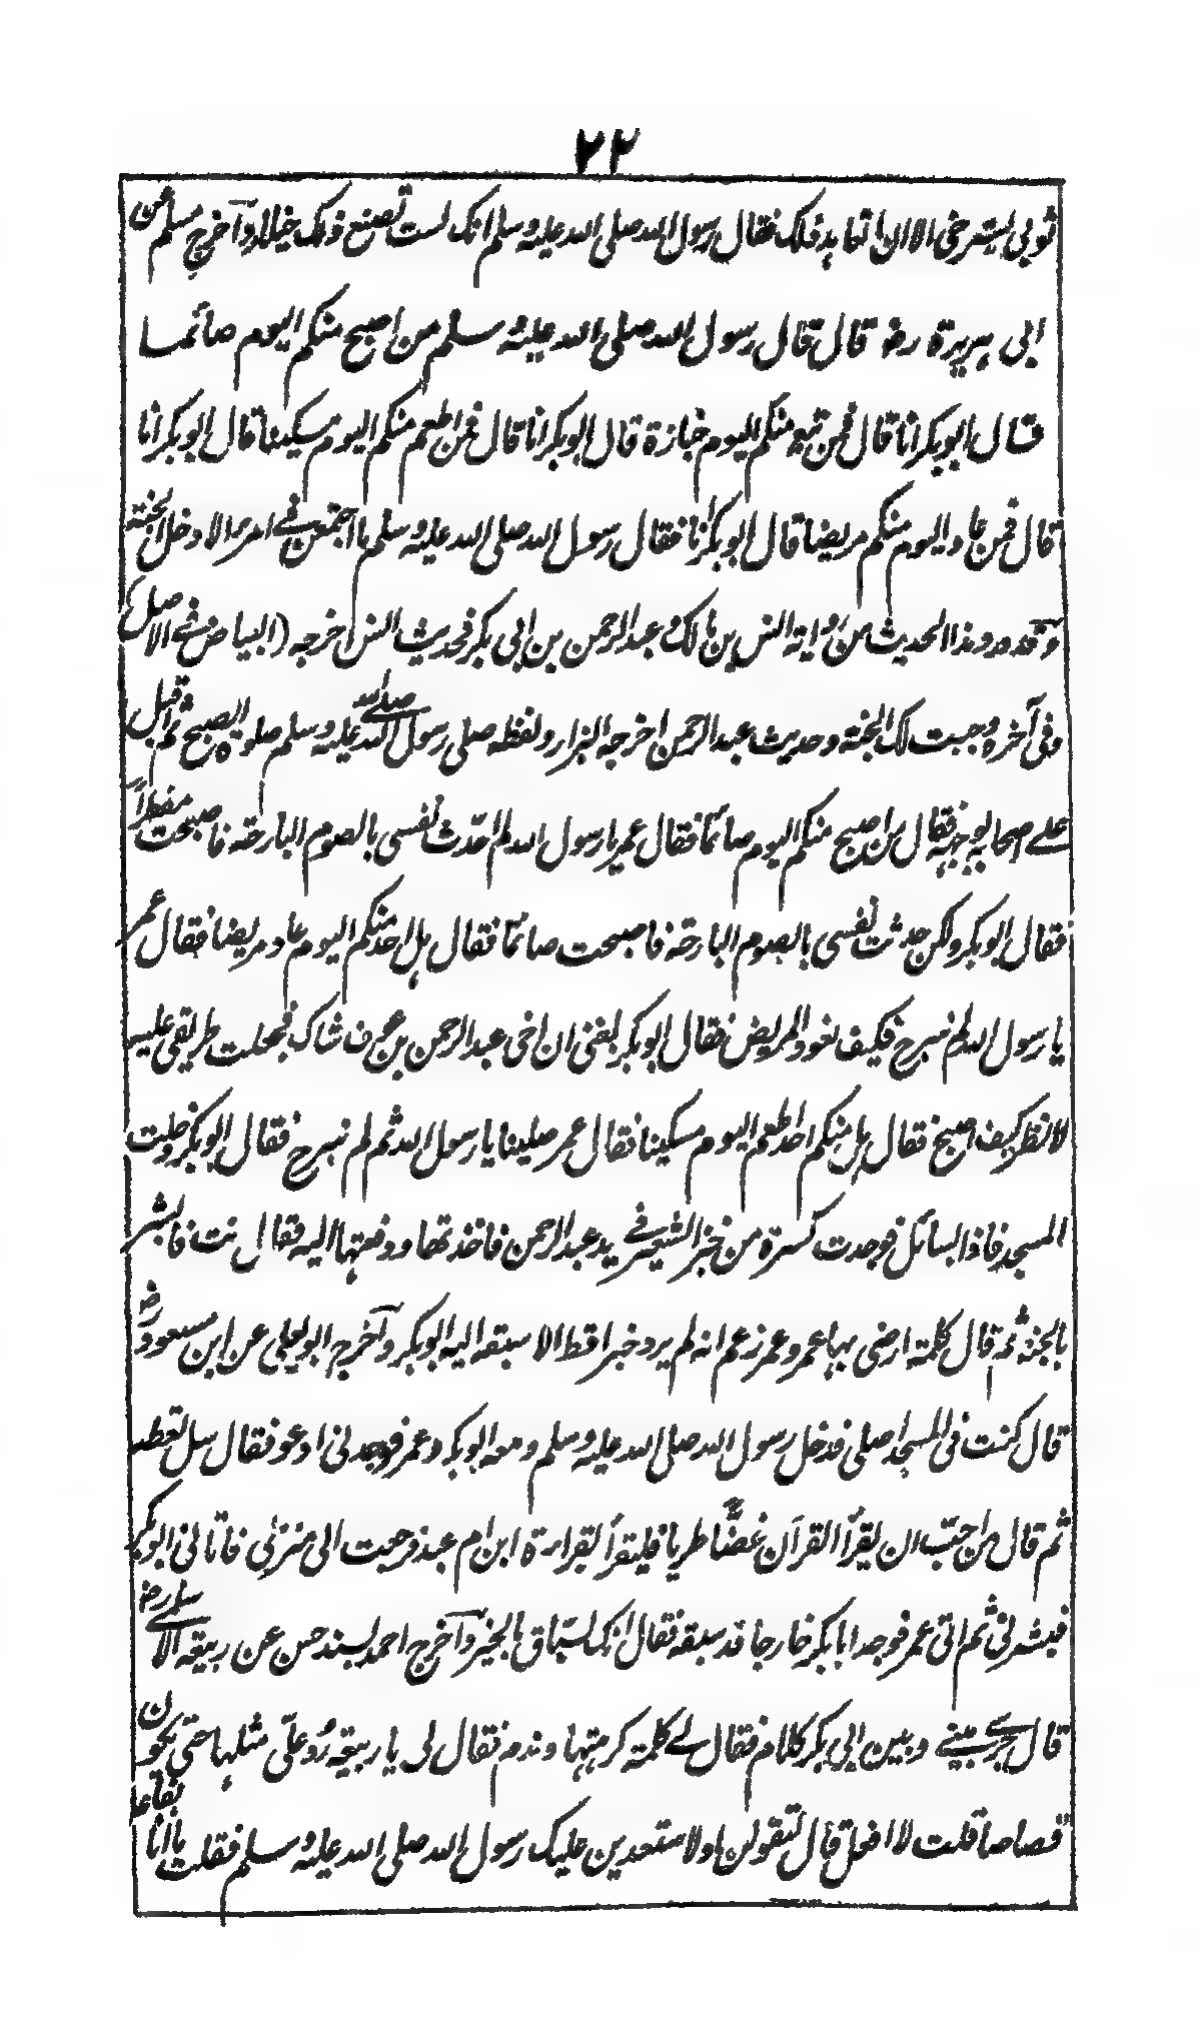 ٢٢
ثوبي يسترخي الا ان اتعاهد ذلك فقال رسول الله صلى الله عليه وسلم انك لست تصنع ذلك خيلاء واخرج مسلم عن
ابي هريرة رض قال قال رسول الله صلى الله عليه وسلم من اصبح منكم اليوم صائما
قال ابو بكر انا قال فمن تبع منكم اليوم جنازة قال ابو بكر انا قال فمن اطعم منكم اليوم مسكينا قال ابو بكر انا
قال فمن عاد اليوم منكم مريضا قال ابو بكر انا فقال رسول الله صلى الله عليه وسلم ما اجتمعن في امرء الا دخل الجنة
وقد ورد هذا الحديث من رواية انس بن مالك وعبد الرحمن بن ابي بكر فحديث انس اخرجه (البياض في الاصل)
وفي آخره وجبت لك الجنة وحديث عبد الرحمن اخرجه البزار ولفظه صلى رسول الله صلى الله عليه وسلم صلوة الصبح ثم اقبل
على اصحابه بوجهه فقال من اصبح منكم اليوم صائما فقال عمر يا رسول الله لم احدث نفسي بالصوم البارحة فاصبحت مفطراً
فقال ابو بكر ولكن حدثت نفسي بالصوم البارحة فاصبحت صائما فقال هل احد منكم اليوم عاد مريضا فقال عمر
يا رسول الله لم نبرح فكيف نعود المريض فقال ابو بكر بلغني ان اخي عبد الرحمن بن عوف شاك فجعلت طريقي عليه
لانظر كيف اصبح فقال هل منكم احد اطعم اليوم مسكينا فقال عمر صلينا يا رسول الله ثم لم نبرح فقال ابو بكر دخلت
المسجد فاذا بسائل فوجدت كسرة من خبز الشعير في يد عبد الرحمن فاخذتها ودفعتها اليه فقال انت فابشر
بالجنة ثم قال كلمة ارضى بها عمر وعمر زعم انه لم يرد خيرا قط الا سبقه اليه ابو بكر واخرج ابو يعلى عن ابن مسعود رض
قال كنت في المسجد اصلي فدخل رسول الله صلى الله عليه وسلم ومعه ابو بكر وعمر فوجدني ادعو فقال سل تعطه
ثم قال من احب ان يقرأ القرآن غضًا طريا فليقرأ بقراءة ابن ام عبد فرجعت الى منزلي فاتاني ابو بكر
فبشرني ثم اتى عمر فوجد ابا بكر خارجا قد سبقه فقال انك لسباق بالخير واخرج احمد بسند حسن عن ربيعة الاسلمي رض
قال جرى بيني وبين ابي بكر كلام فقال لي كلمة كرهتها وندم فقال لي يا ربيعة رُد علىّ مثلها حتى يكون
قصاصا قلت لا افعل قال لتقولن اولا ستعدين عليك رسول الله صلى الله عليه وسلم فقلت ما انا بفاعل